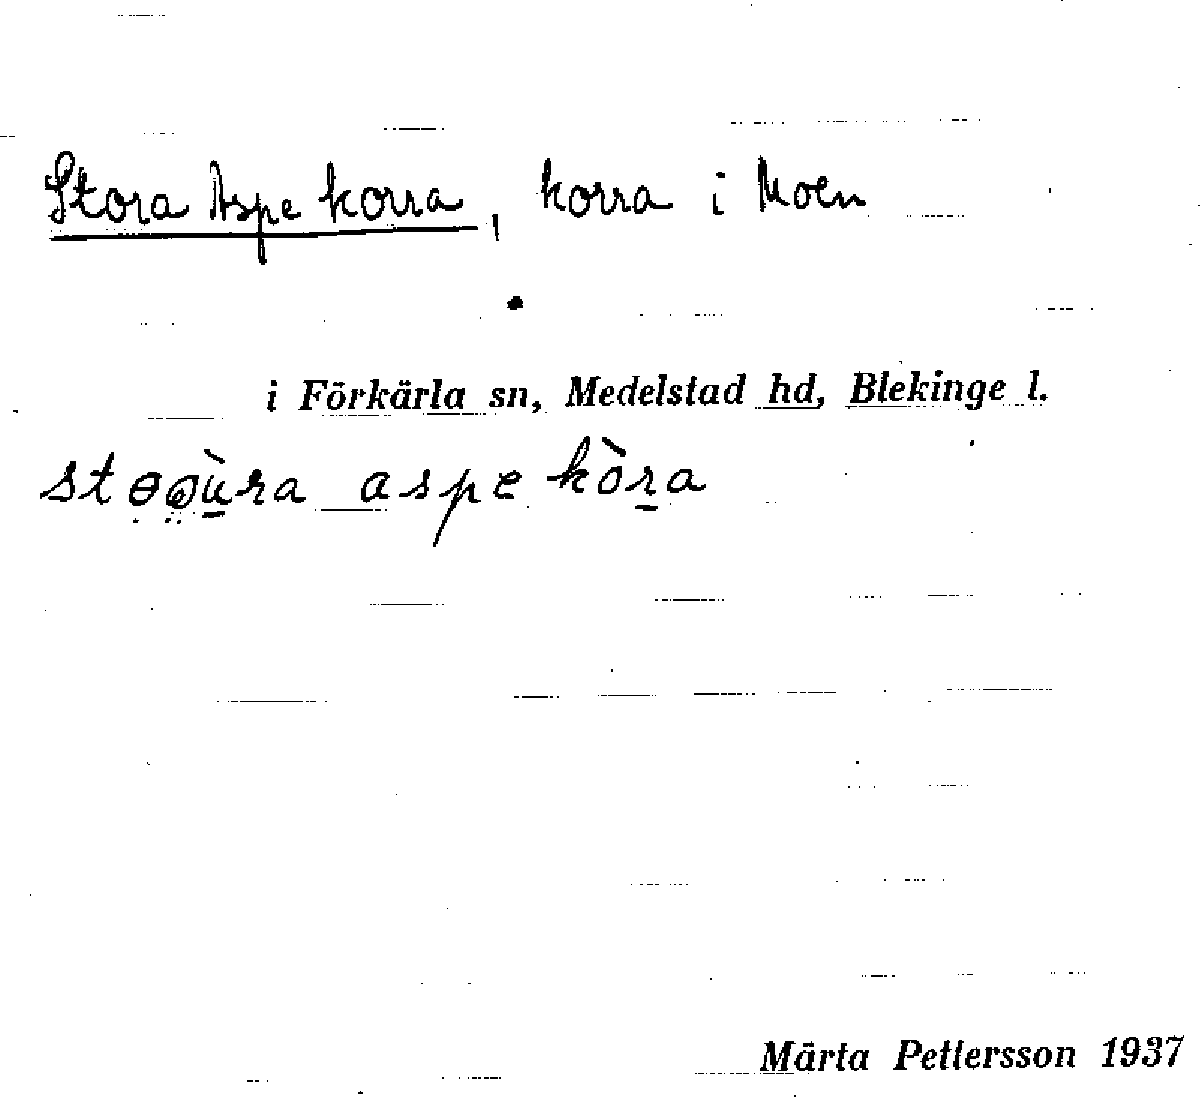 Stora Aspe korra, korra i Moen
i Förkärla sn, Medelstad hd, Blekinge l.
aspe kòra
Märta Pettersson 1937